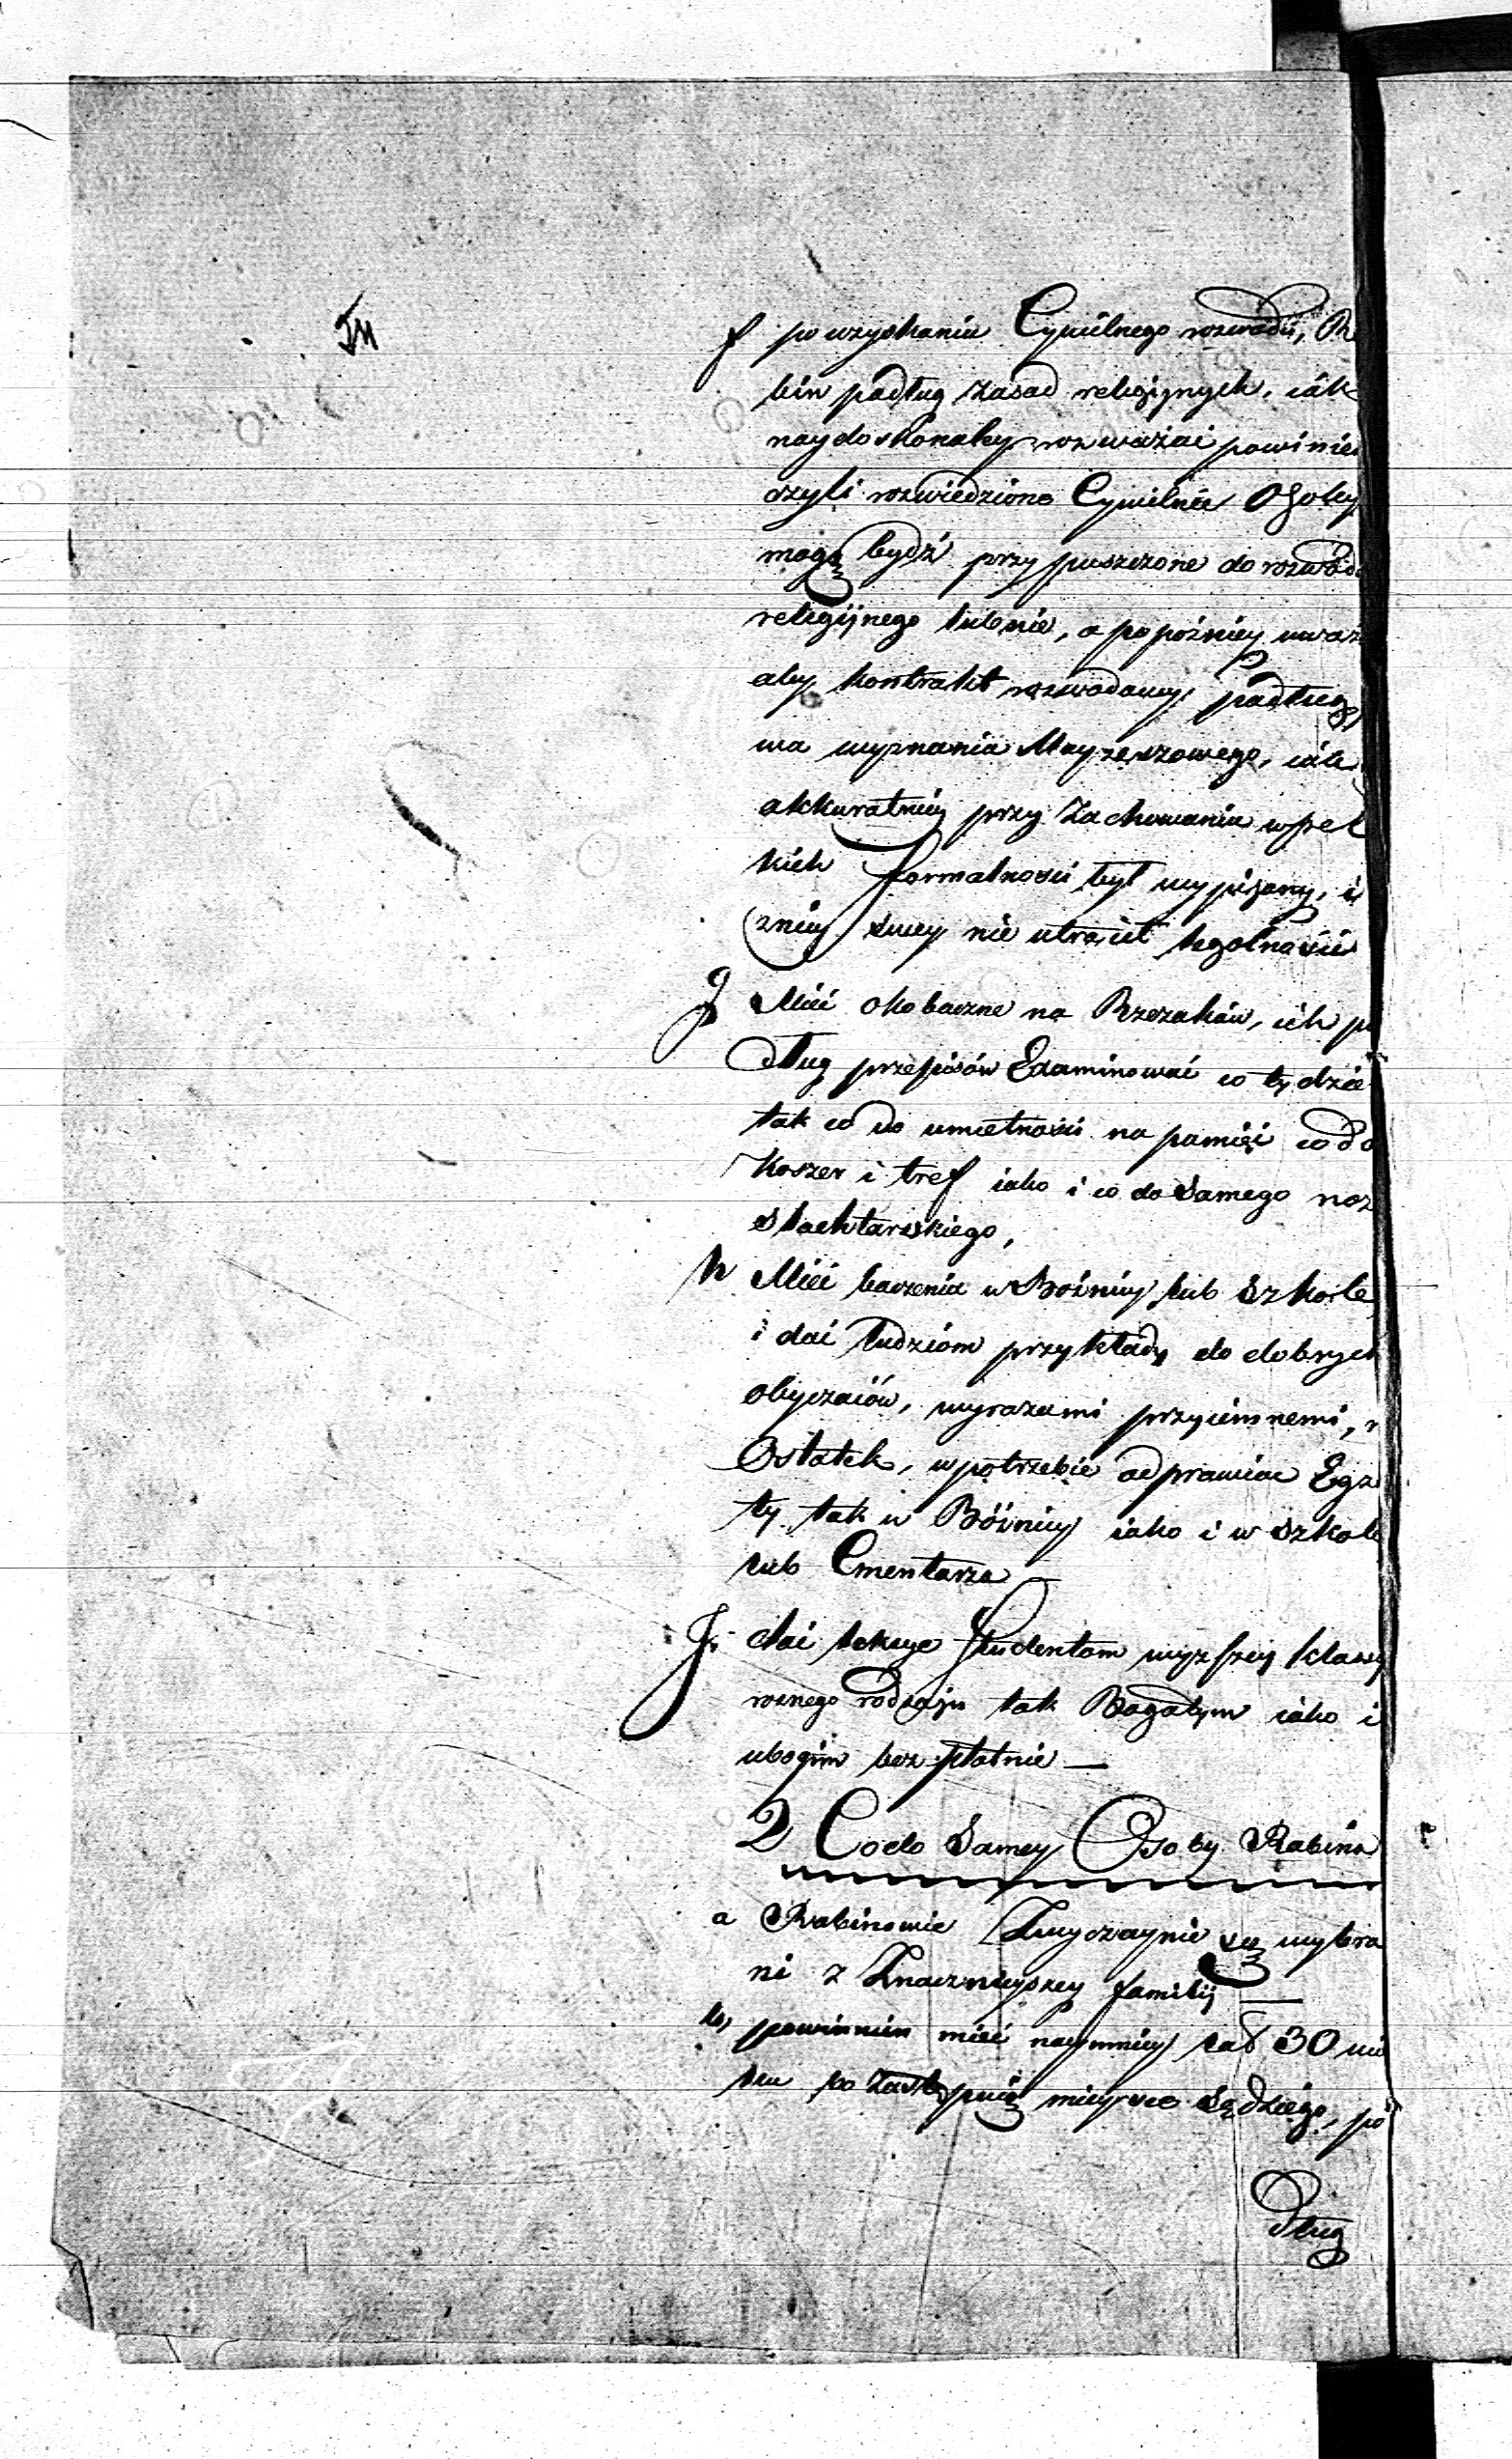 f po uzyskaniu Cywilnego rozwodu, R
bin podług zasad religiynych, iak
naydoskonaley rozważać powinie
czyli rozwiedzione Cywilnie Osoby
mogą bydź przypuszczone do rozwod
religijnego lub nie, a popoźniey uważ
aby kontrakt rozwodowy podług
wa wyznania Moyżeszowego, iak
akkuratniey przy zachowaniu wszel
kich formalności był wypisany, i
zniey swey nie utracił legalności
g Mieć oko baczne na Rzezaków, ich po
dług przepisów Examinować co tydzie
tak co do umietności na pamięć co do
Koszer i tref iako i co do samego noż
szlachtarskiego,
h Mieć baczenie w Bożnicy lub Szkole
i dać ludziom przykłady do dobrych
obyczaiów, wyrazami przyiemnemi,
Ostatek, w potrzebie odprawiac Egz
ty tak w Bóżnicy iako i w szkole
lub Cmentarza —
J. dać lekcye Studentom wyższey klassy
rożnego rodzaju tak Bogatym iako i
ubogim bez płatnie —
2 Co do Samey Osoby Rabina
a Rabinowie Zwyczaynie są wybra
ni z Znacznieyszey familij —
b, powinnien mieć naymniey lat 30 wie
ku bo zastępuią mieysce Sędziego, po
dług